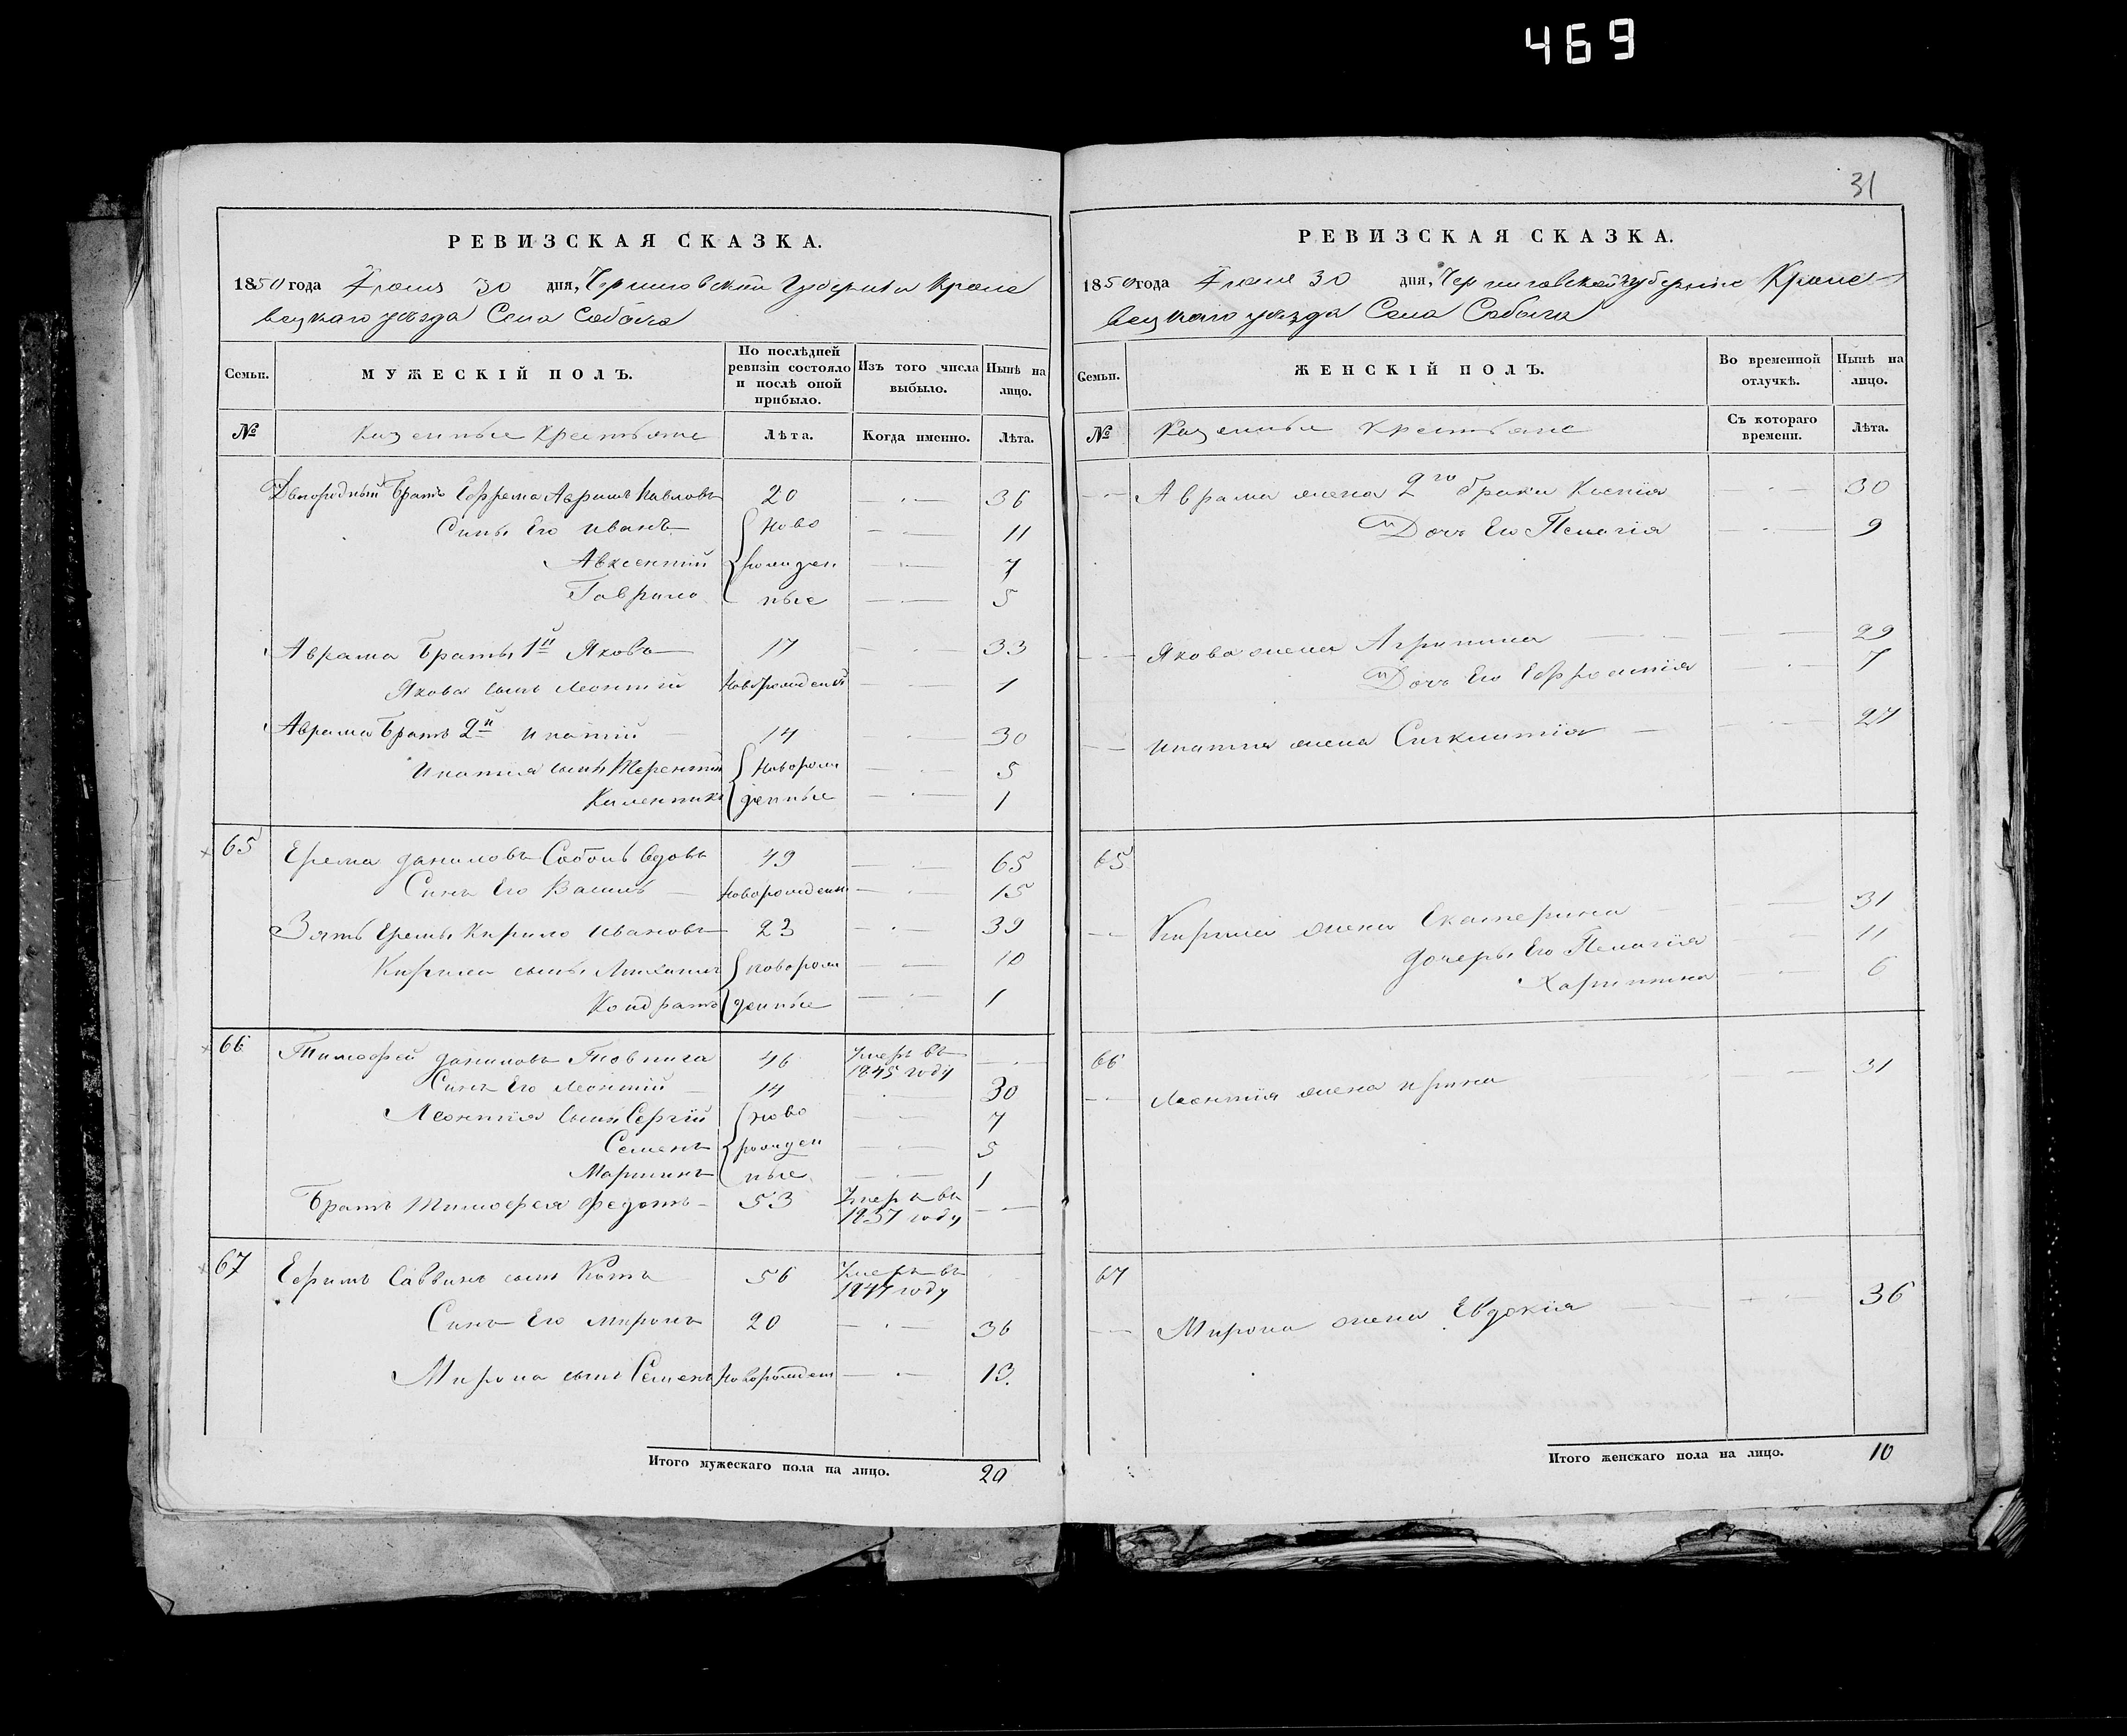 469
31
РЕВИЗСКАЯ СКАЗКА.
1850 года Іюня 30 дня, Черниговской Губерніи Кроле
вецкаго уѣзда Села Собыча
Семьи.
МУЖЕСКІЙ ПОЛЪ.
По послѣдней ревизіи состояло и послѣ оной прибыло.
Изъ того числа выбыло.
Нынѣ на лицо.
№
Казенные Крестьяне
Лѣта.
Когда именно.
Лѣта.
Двоюродный Братъ Ефрема Аврамъ Павловъ 20 — . — 36
Сины Его Иванъ ново — . — 11
Авксентий рожден — . — 7
Гаврило ные — . — 5
Аврама Братъ 1й Яковъ 17 — . — 33
Якова сынъ Леонтий Новорожденый — . — 1
Аврама Братъ 2й Ипатий 14 — . — 30
Ипатия сыны ТерентийНоворож — . — 5
Калентикъ денные — . — 1
65 Ерема Даниловъ Соболь вдовъ 49 — . — 65
Синъ Его Василь Новорожденн — . — 15
Зять Еремы Кирило Ивановъ 23 — . — 39
Кирила сыны Михаилъ новорож — . — 10
Кондратъ денные — . — 1
66 Тимофей Даниловъ Товпига 46 Умеръ въ 1845 году — . —
Синъ Его Леонтий 14 — . — 30
Леонтия сыны Сергій ново — . — 7
Семенъ рожден — . — 5
Мартинъ ные — . — 1
Братъ Тимофея Федотъ 53 Умеръ въ 1837 году — . —
67 Ефимъ Саввинъ сынъ Котъ 56 Умеръ въ 1847 году
Синъ Его Миронъ 20 — . — 36
Мирона сынъ Семенъ Новорожден — . — 13.
Итого мужескаго пола на лицо. 20
РЕВИЗСКАЯ СКАЗКА.
1850 года Іюня 30 дня, Черниговской губерніи Кроле
вецкаго уѣзда Села Собыча
Семьи.
ЖЕНСКІЙ ПОЛЪ.
Во временной отлучкѣ.
Нынѣ на лицо.
№
Казенные Крестьяне
Съ котораго времени.
Лѣта.
Аврама жена 2го брака Ксенія — . — 30
Дочь Его Пелагія — . — 9
Якова жена Агрипина — . — 29
Дочь Его Ефросинія — . — 7
Ипатия жена Синклитія — . — 27
65
Кирила жена Екатерина — . — 31
дочеры Его Пелагія — . — 11
Харитина — . — 6
66
Леонтія жена Ирина — . — 31
67
Мирона жена Евдокія — . — 36
Итого женскаго пола на лицо. 10